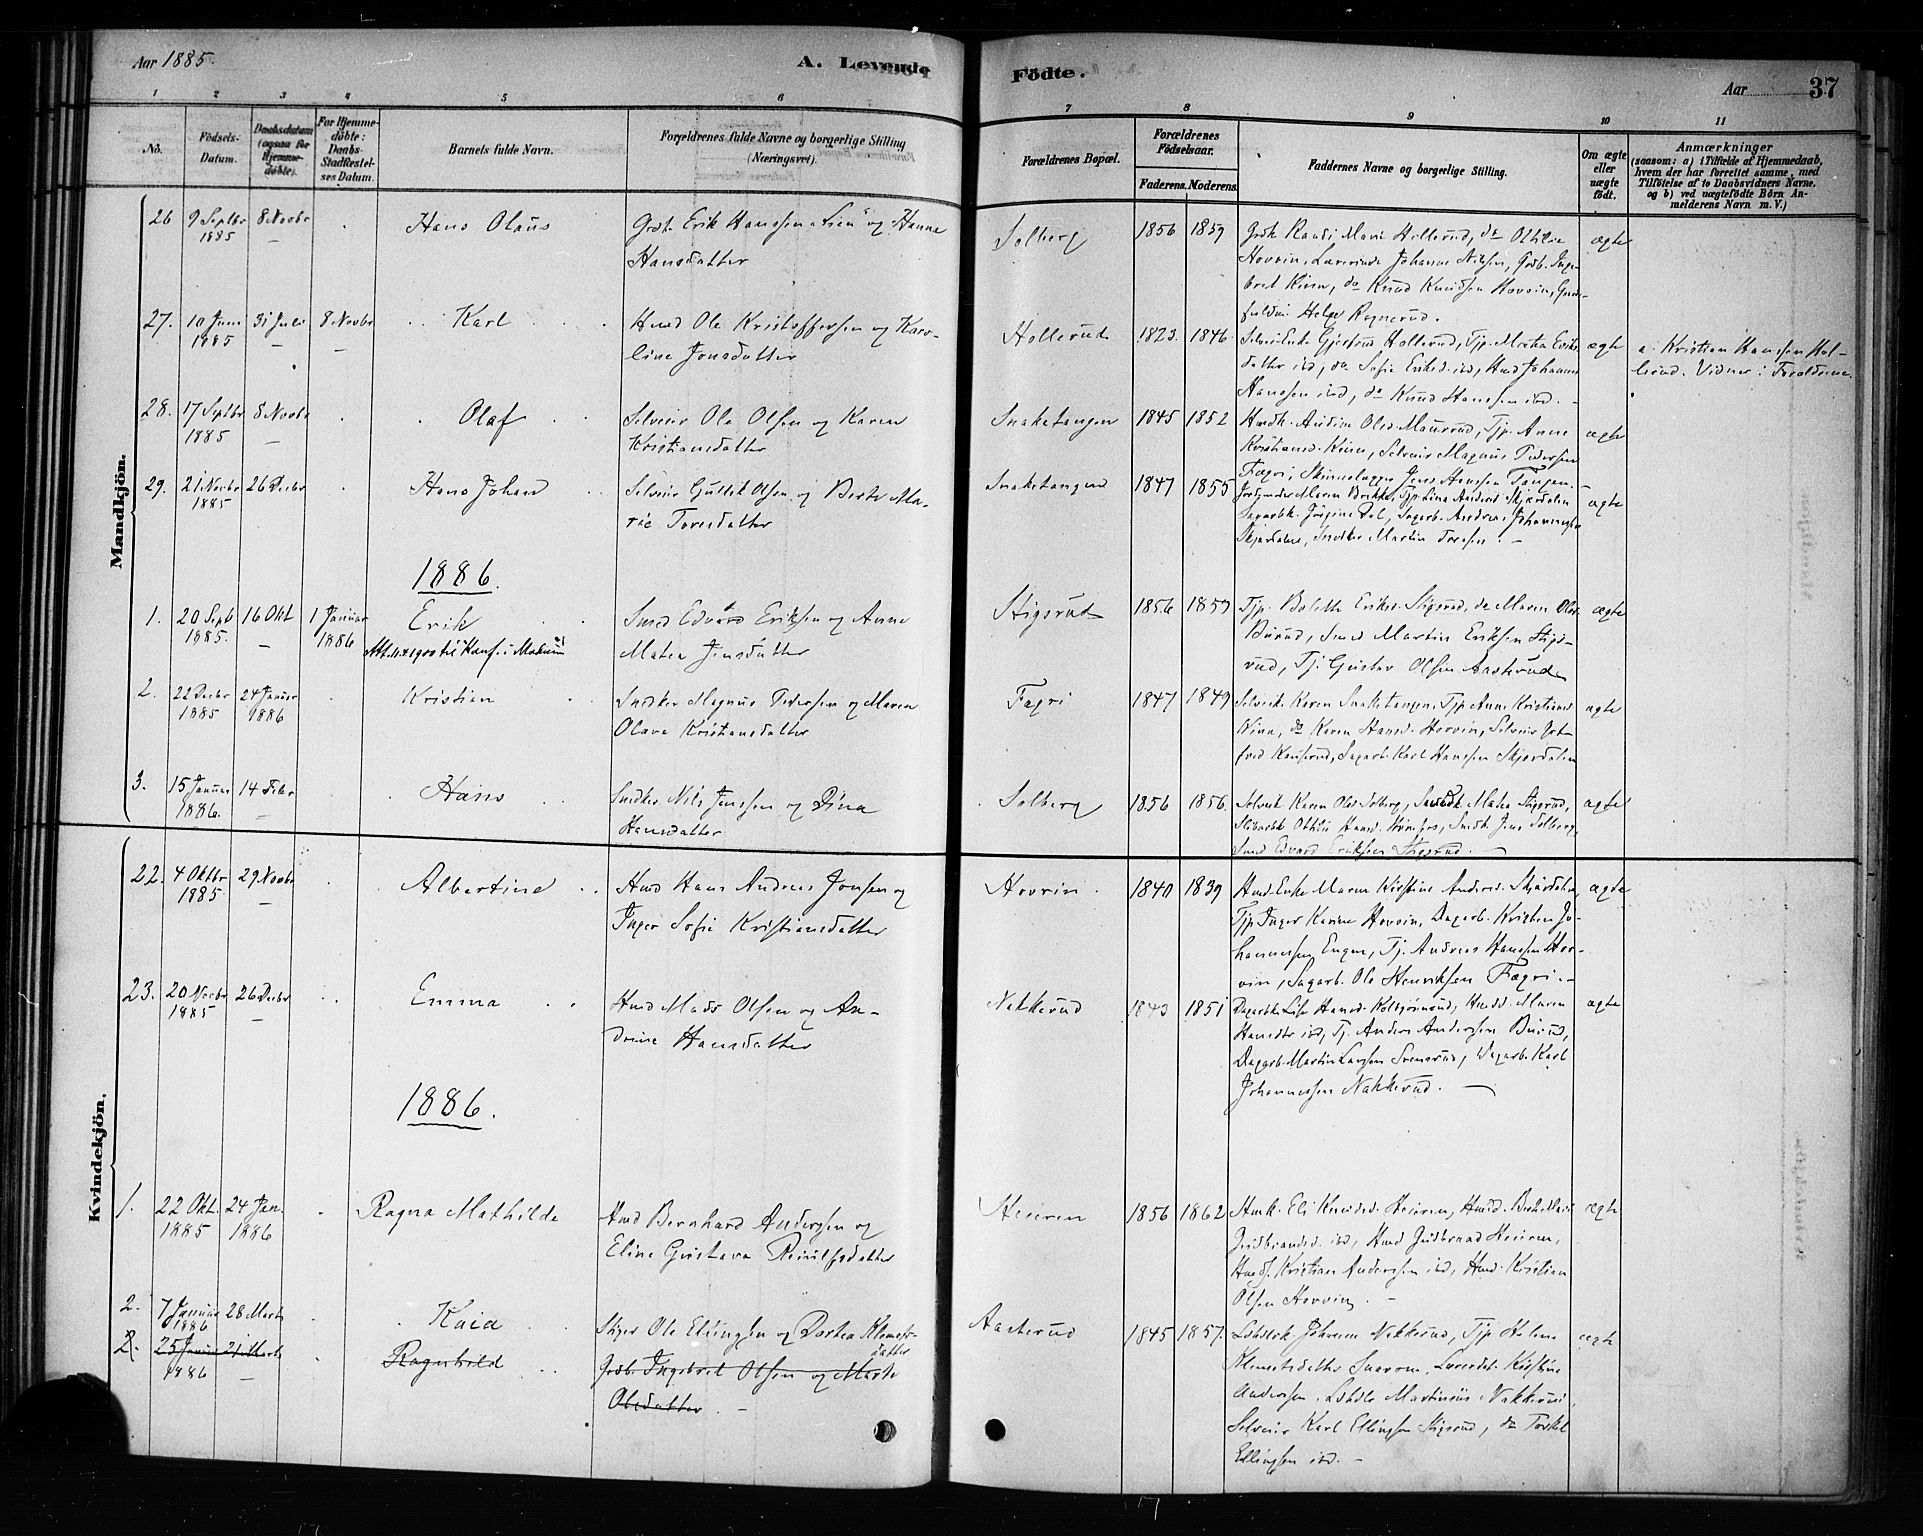 Aar 1885.
A. Levende
Födte.
Aar
37
1
2
3
4
5
6
7
8
9
10
11
No.
Födsels-
Datum.
Daabsdatum
(ogsaa for
Hjemme-
döbte).
For Hjemme-
döbte:
Daabs-
Stadfæstel-
ses Datum.
Barnets fulde Navn.
Forældrenes fulde Navne og borgerlige Stilling
(Næringsvei).
Forældrenes Bopæl.
Forældrenes
Födselsaar.
Faderens.
Moderens.
Faddernes Navne og borgerlige Stilling.
Om ægte
eller
uægte
födt.
Anmærkninger
(saasom: a) i Tilfælde af Hjemmedaab,
hvem der har forrettet samme, med
Tilföielse af to Daabsvidners Navne,
og b) ved uægtefödte Börn An-
melderens Navn m. V.)
Mandkjön.
26
9 Septbr
1885
8 Novbr
Hans Olaus
Erik Hanssen Lien og Hanna
Hansdatter
Solberg
1856
1859
Randi Marie Hollerud, do Othilie
Hovin, Lærerinde Johanne Nilsen, Gbr. Inge-
bret Kinn, do Knud Knudsen Hovin,
Helge Ragnerud.
ægte
27.
10 Juni
1885
31 Juli
8 Novbr
Karl
Hmd Ole Kristoffersen og Karo-
line Jonsdatter
Hollerud
1823.
1846.
Selveierenke Gjertrud Hollerud, Tjp. Marta Eriks-
datter ibd, do Sofie Eriksd. ibd, Hmd Johannes
Hanssen ibd, do Knud Hanssen ibd. -
ægte
a. Kristian Hanssen Hol-
lerud. Vidner: Forældrene.
28.
17 Septbr
1885
8 Novbr
Olaf
Selveier Ole Olsen og Karen
Kristiansdatter
Snaketangen
1845
1852
Olsd Maurud, Tjp. Anne
Kristiansd. Kinn, Selveier Magnus Pedersen
Fagri, Jens Hansen Tangen.
ægte
29.
21 Novbr
1885
26 Decbr
Hans Johan
Selveier Gullik Olsen og Berte Ma-
rie Toresdatter
Snaketangen
1847
1855
Maren Brekke, Tjp. Lina Andersd Skjærdalen
Sagarbk. Jörgine Dal, Sagarb. Andreas Johannessen
Skjærdalen, Snedker Martin Toresen. -
ægte
1886.
1.
20 Sept
1885.
16 Okt
1 Januar
1886
Erik
Att. 11.4.1900 til Konf. i Modum
Smed Edvard Eriksen og Anne
Matea Jensdatter
Stigsrud
1856
1859
Tjp. Bolette Eriksd. Stigsrud, do Maren Olsd.
Burud, Smed Martin Eriksen Stigs-
rud, Tj. Gustav Olsen Aasterud
ægte
2.
22 Decbr
1885
24 Januar
1886
Kristian
Snedker Magnus Pedersen og Maren
Olava Kristiansdatter
Fagri
1847
1849
Selveierk. Karen Snaketangen, Tjp. Anne Kristiansd
Kinn, do Karen Hansd. Hovin, Selveier Got-
fred Kanserud, Sagarb. Karl Hanssen Skjærdalen
ægte
3.
15 Januar
1886.
14 Febr
Hans
Snedker Nils Jenssen og Dina
Hansdatter
Solberg
1856
1856.
Selveierk Karen Olsd Solberg, Smedk Matea Stigsrud,
Othilie Hansd. Hönefos, Smed Jens Solberg,
Smed Edvard Eriksen Stigsrud. -
ægte
Kvindekjön.
22.
4 Oktbr
1885
29 Novbr
Albertine
Hmd Hans Andreas Jonsen og
Inger Sofie Kristiansdatter
Hovin.
1840
1839
Hmd.Enke Maren Kirstine Andersd. Skjærdalen,
Tjp. Inger Karine Hovin, Dagarb. Kristian Jo-
hannessen Engen, Tj. Andreas Hanssen Hov-
vin, Sagarb. Ole Henriksen Fagri. -
ægte
23.
20 Novbr
1885
26 Decbr
Emma
Hmd Mads Olsen og An-
drine Hansdatter
Nakkerud
1843
1851
Dagarbk. Lise Hansd. Kolbjörnsrud, Hmdd. Maren
Hansdtr ibd, Tj. Anders Andersen Burud,
Dagarb. Martin Larsen Svensrud, Dagarb. Karl
Johannessen Nakkerud. -
ægte
1886.
1.
22 Okt.
1885
24 Jan.
1886
Ragna Mathilde
Hmd Bernhard Andersen og
Eline Gustava Reinilfsdatter
Heieren
1856
1862
Hmk. Eli Knudsd. Heieren, Hmdd. Berte Marie
Gudbrandsd. ibd, Hmd Gudbrand Heieren,
Hmds. Kristian Andersen ibd, Hmd. Kristian
Olsen Hovin. -
ægte
2.
7 Januar
1886
28 Marts
Kaia
Stiger Ole Ellingsen og Dortea Klemets-
datter
Aasterud
1845
1857.
Johanne Nakkerud, Tjp Helene
Klemetsdatter Snarum, Lærerdat. Kirstine
Andersen, Martinius Nakkerud,
Selveier Karl Ellingsen Stigsrud, do Torkel
Ellingsen ibd. -
ægte
2.
25 Januar
1886
21 Marts
Ragnhild
Gbr. Ingebret Olsen og Marte
Olsdatter. -